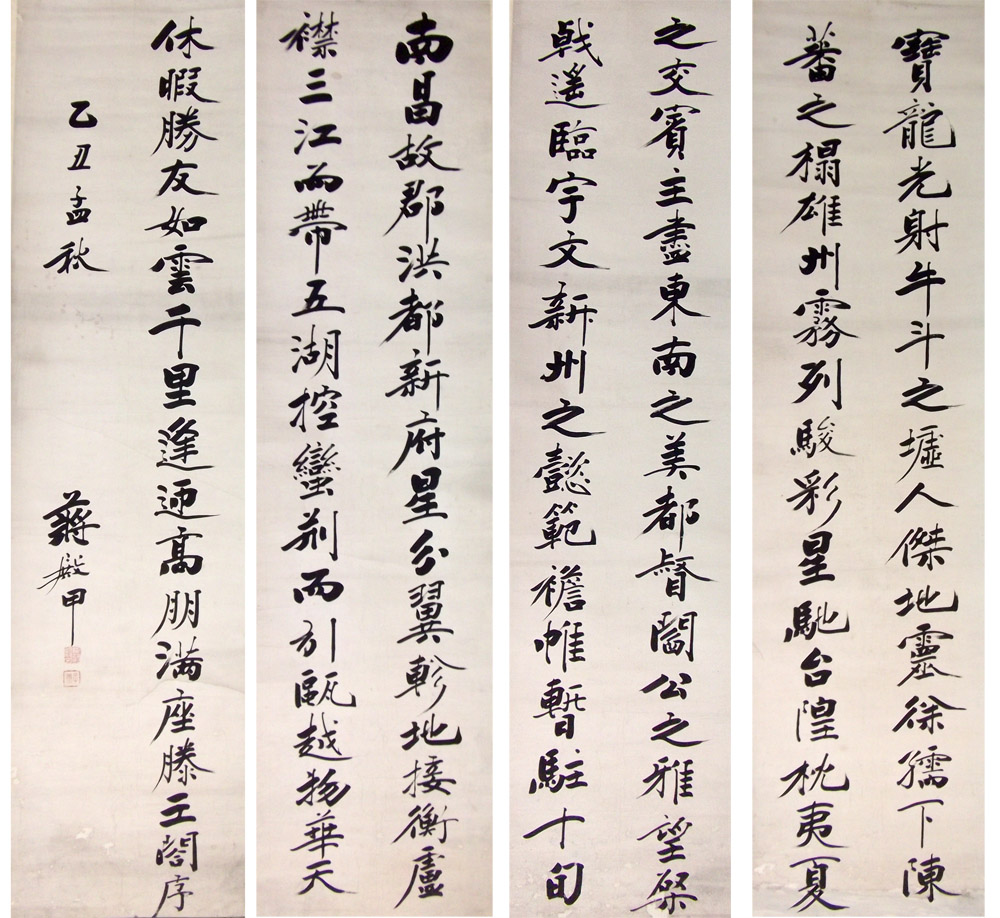 寶龍光射牛斗之墟人傑地靈徐孺下陳
蕃之榻雄州霧列駿彩星馳台隍枕夷夏
之交賓主盡東南之美都督閻公之雅望棨
戟遙臨宇文新州之懿範襜帷暫駐十旬
南昌故郡洪都新府星分翼軫地接衡廬
襟三江而帶五湖控蠻荊而引甌越物華天
休暇勝友如雲千里逢迎高朋滿座滕王閣序
乙丑孟秋
蔣殿甲